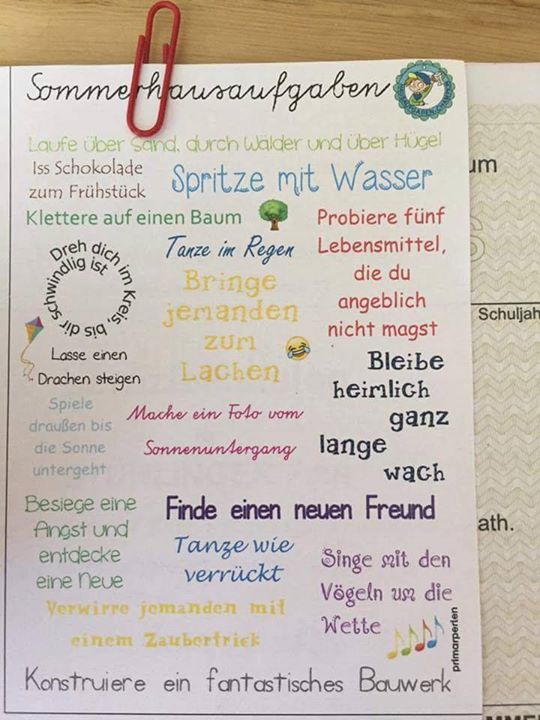 Sommerhausaufgaben
Laufe über Sand, durch Wälder und über Hügel
Iss Schokolade
zum Frühstück
Spritze mit Wasser
Klettere auf einen Baum
Probiere fünf
Lebensmittel,
die du
angeblich
nicht magst
Dreh dich im Kreis, bis dir schwindlig ist
Tanze im Regen
Bringe
jemanden
zum
Lachen
Lasse einen
Drachen steigen
Bleibe
heimlich
ganz
lange
wach
Spiele
draußen bis
die Sonne
untergeht
Mache ein Foto vom
Sonnenuntergang
Besiege eine
Angst und
entdecke
eine Neue
Finde einen neuen Freund
Tanze wie
verrückt
Singe mit den
Vögeln um die
Wette
Verwirre jemanden mit
einem Zaubertrick
primarperlen
Konstruiere ein fantastisches Bauwerk
um
Schuljah
ath.